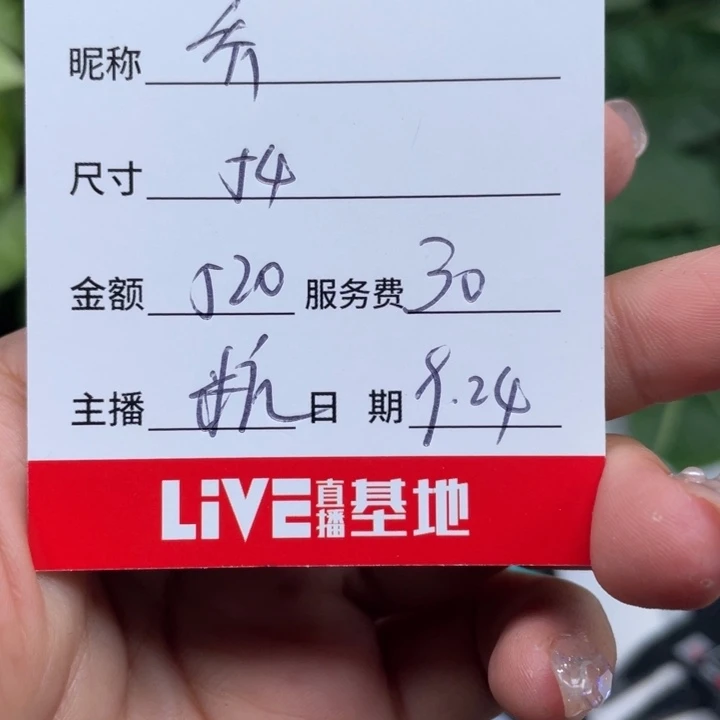 昵称 乔
尺寸 54
金额 520 服务费 30
主播 日 期 9.24
LiVE直播基地